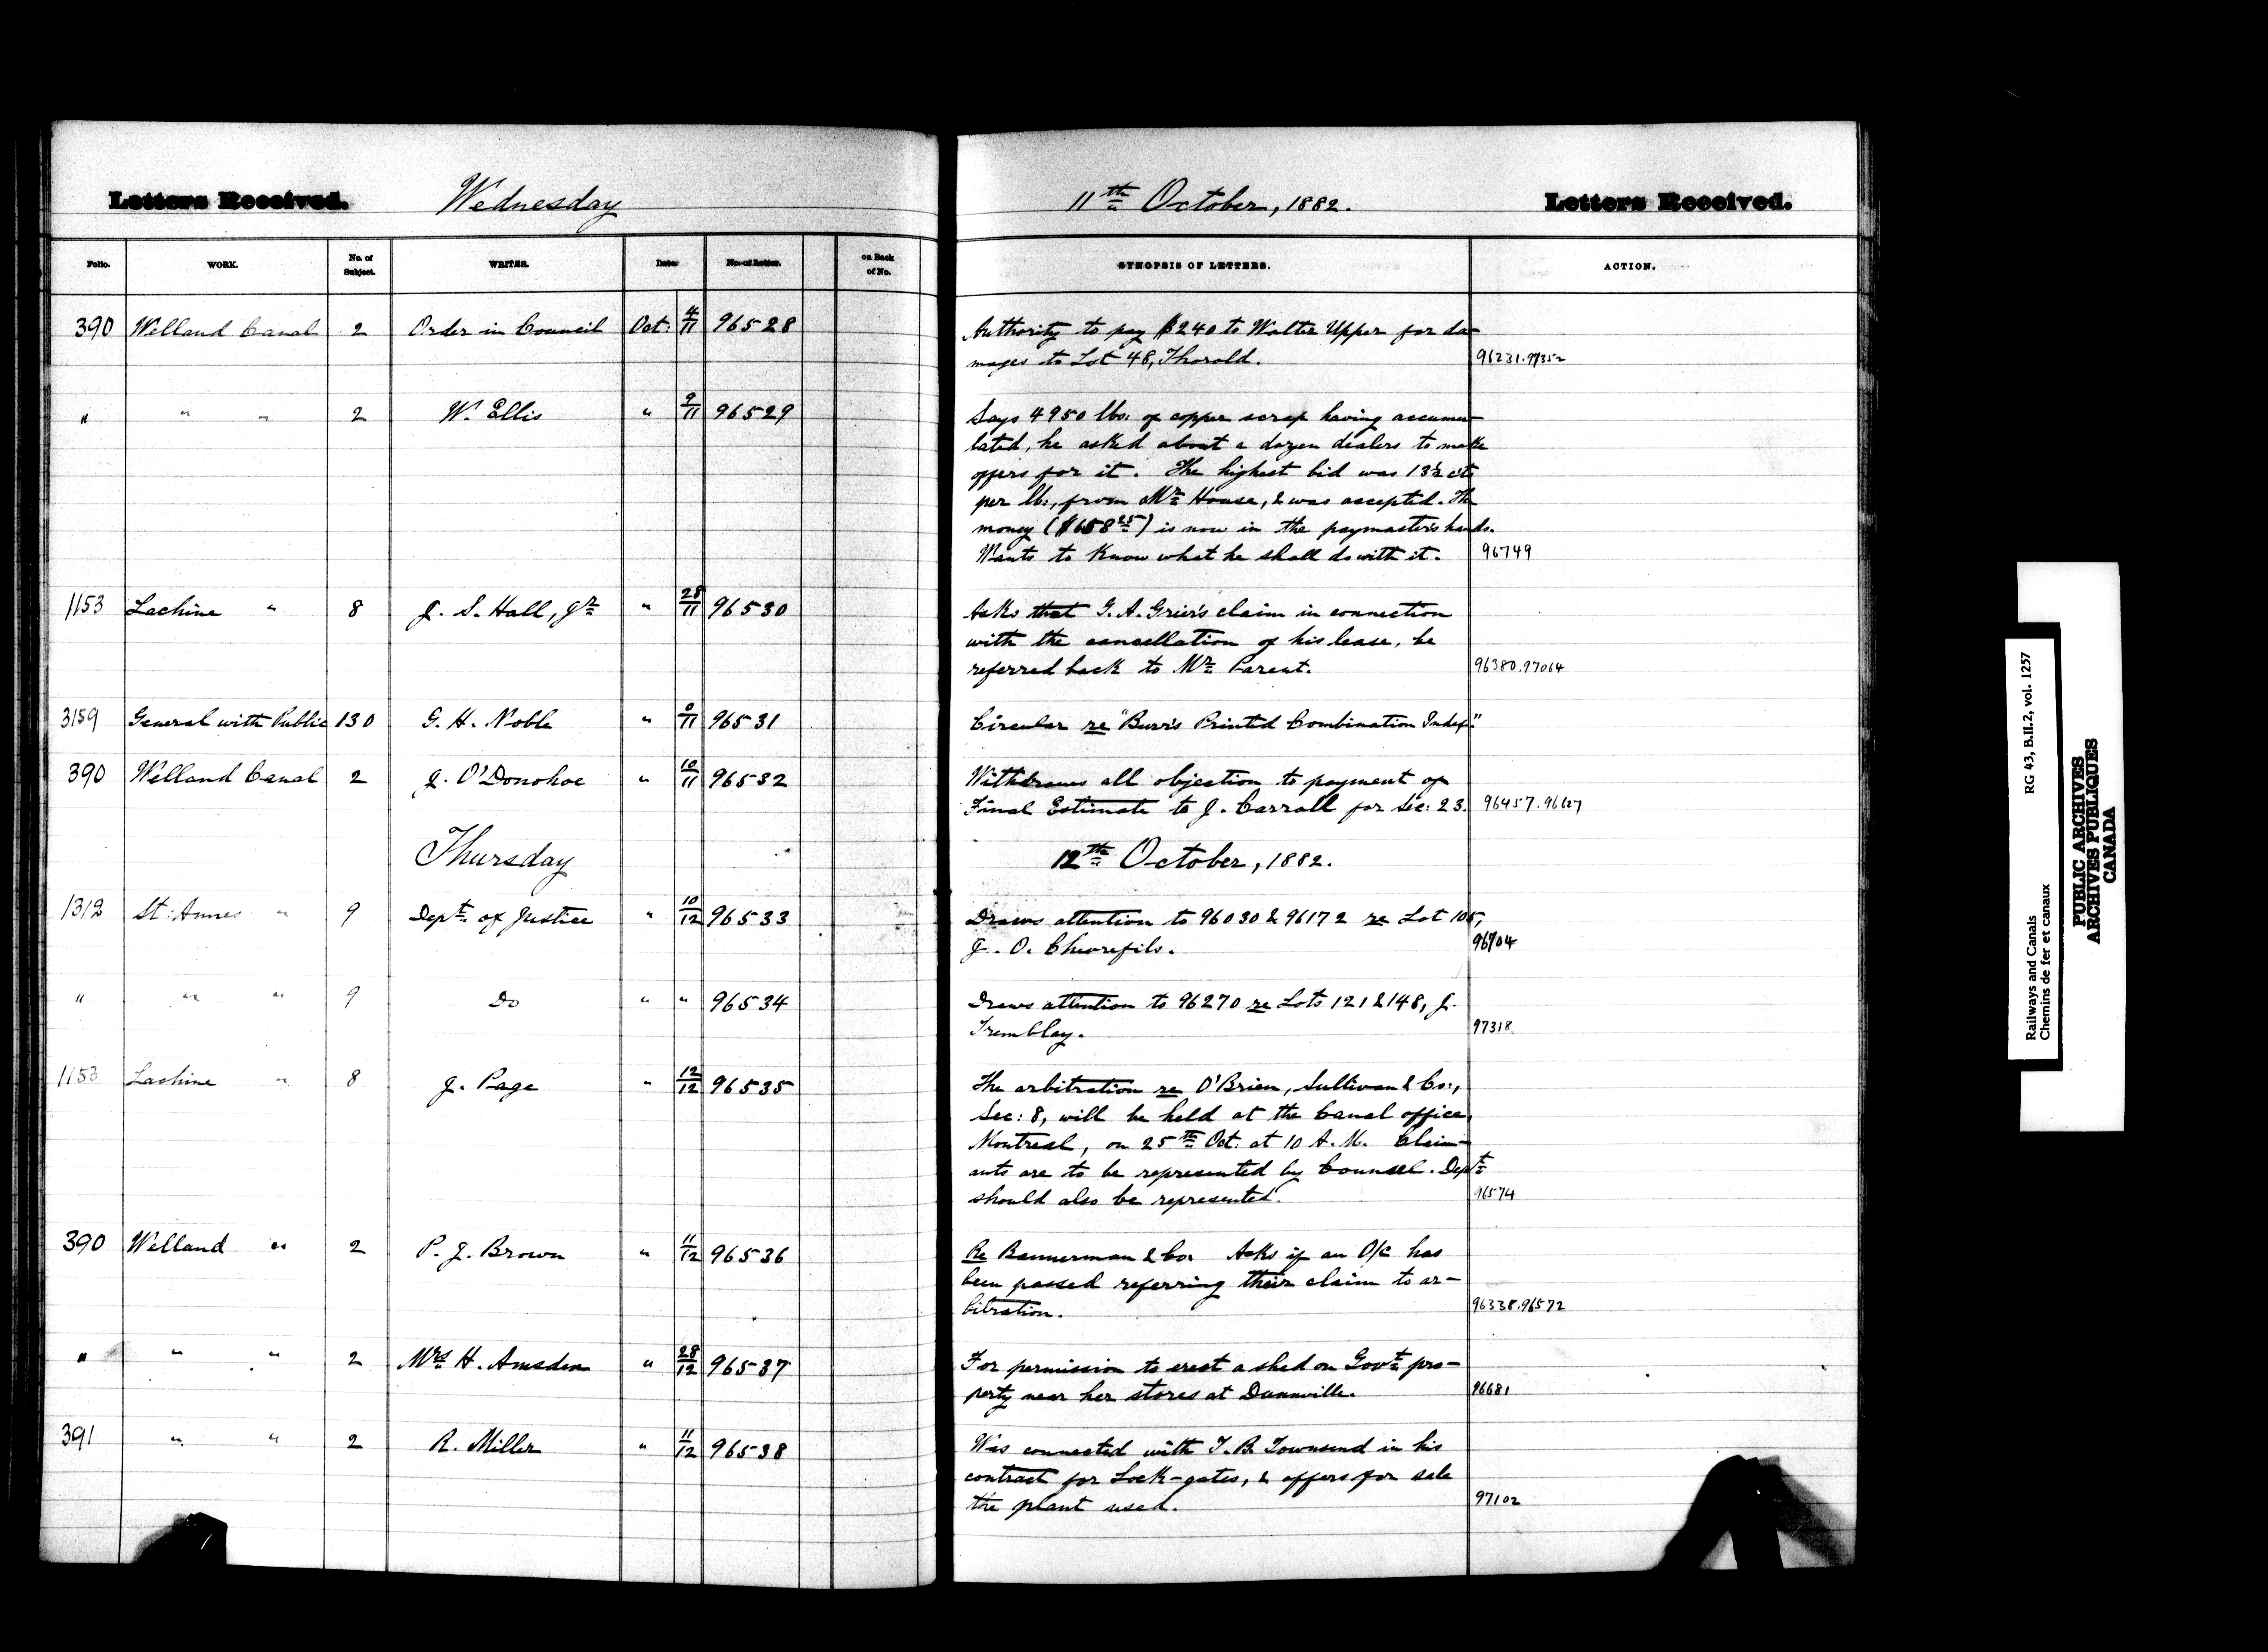 Letters Received. Wednesday 11th October, 1882. Letters Received.
Folio. WORK. No. of Subject. WRITER. Date No. of Letter. on Back of No. SYNOPSIS OF LETTERS. ACTION.
390 Welland Canal 2 Order in Council Oct: 4/11 96528 Authority to pay $240 to Walter Upper for da-
mages to Lot 48, Thorold. 96231.97352
" " " 2 W. Ellis " 9/11 96529 Says 4950 lbs: of copper scrap having accumu-
lated, he asked about a dozen dealers to make
offers for it. The highest bid was 13½ cts
per lb:, from Mr House, & was accepted. The
money ($658 25) is now in the paymaster's hands.
Wants to know what he shall do with it. 96749
1153 Lachine " 8 J. S. Hall, Jr " 28/11 96530 Asks that G. A. Grier's claim in connection
with the cancellation of his lease, be
referred back to Mr Parent. 96380.97064
3159 General with Public 130 G. H. Noble " 0/11 96531 Circular re "Burr's Printed Combination Index."
390 Welland Canal 2 J. O'Donohoe " 10/11 96532 Withdraws all objection to payment of
Final Estimate to J. Carroll for Sec: 23. 96457.96627
Thursday 12th October, 1882.
1312 St: Annes " 9 Dept of Justice " 10/12 96533 Draws attention to 96030 & 96172 re Lot 105,
J. O. Chevrefils. 96704
" " " 9 Do " " 96534 Draws attention to 96270 re Lots 121 & 148, J.
Tremblay. 97318
1153 Lachine " 8 J. Page " 12/12 96535 The arbitration re O'Brien, Sullivan & Co:,
Sec: 8, will be held at the Canal office,
Montreal, on 25th Oct: at 10 A.M. Claim-
ants are to be represented by Counsel. Dept
should also be represented. 96574
390 Welland " 2 P. J. Brown " 11/12 96536 Re Bannerman & Co: Asks if an O/C has
been passed referring their claim to ar-
bitration. 96338.96572
" " " 2 Mrs H. Amsden " 28/12 96537 For permission to erect a shed on Govt pro-
perty near her stores at Dunnville. 96681
391 " " 2 R. Miller " 11/12 96538 Was connected with T. B. Townsend in his
contract for Lock-gates, & offers for sale
the plant used. 97102
Railways and Canals RG 43, B.II.2, vol. 1257
Chemins de fer et canaux
PUBLIC ARCHIVES
ARCHIVES PUBLIQUES
CANADA